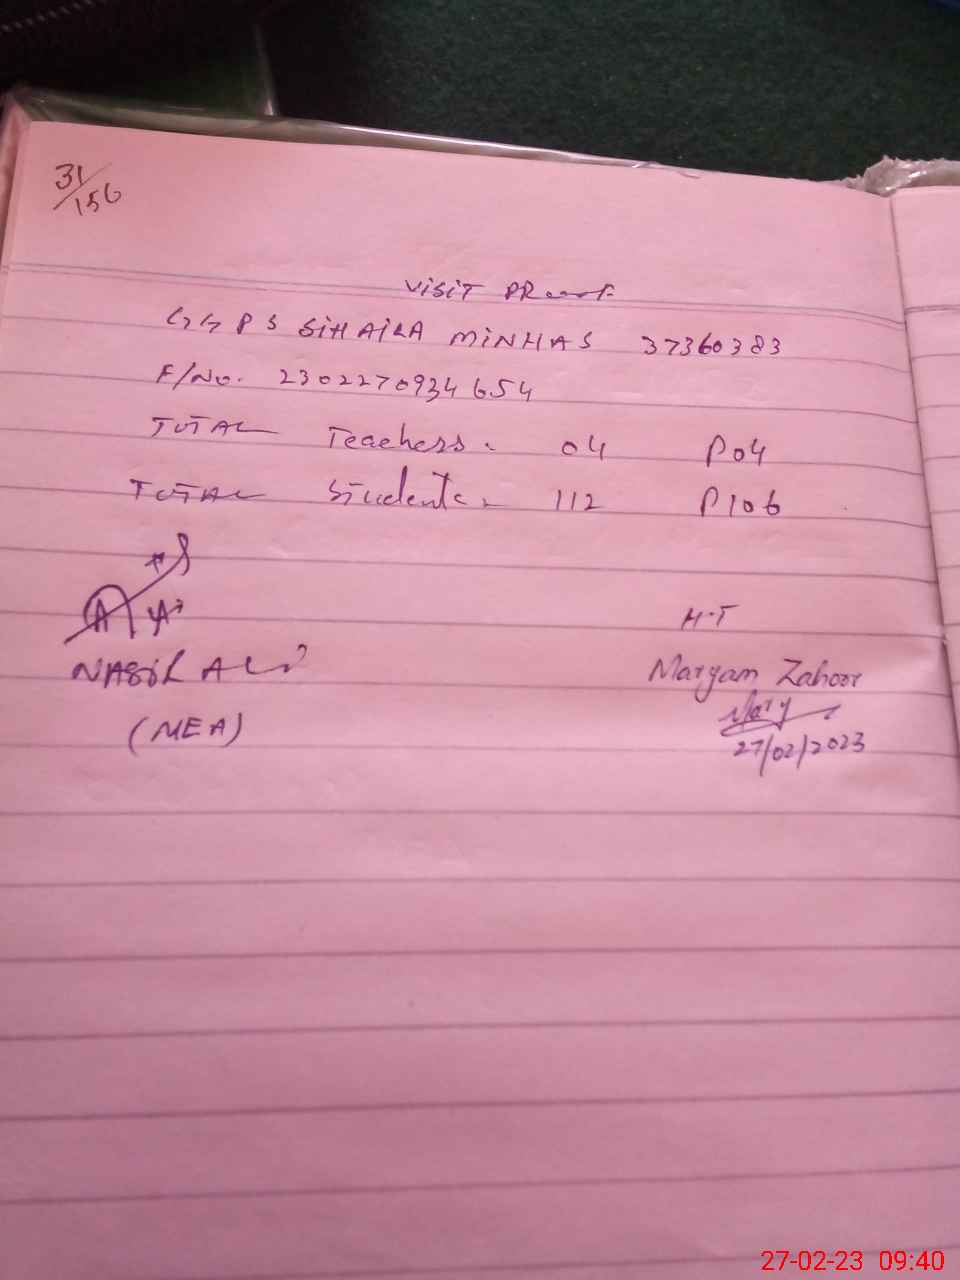 31/156
VISIT PRoof
GGPS SIHAILA MINHAS 37360383
F/No. 230227093 4654
TOTAL Teachers. 04 P04
TOTAL Students. 112 P106
H.T
NASIR ALi
Maryam Zahoor
(MEA)
Mary
27/02/2023
27-02-23 09:40